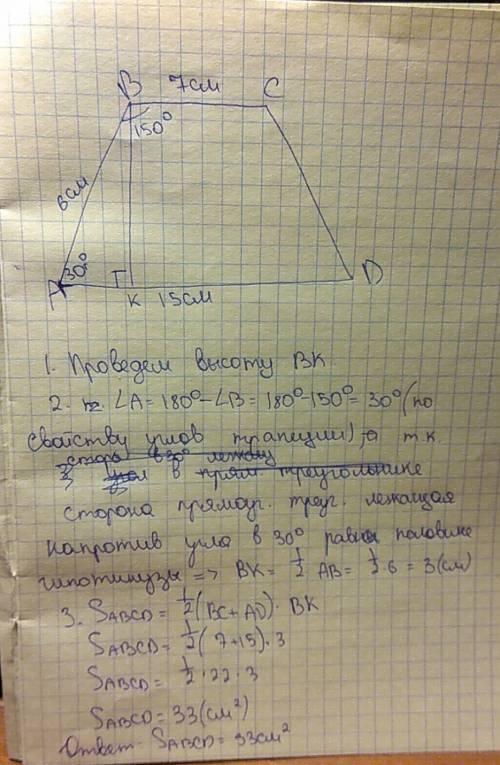 B 7см C
150°
6см
30°
A K 15см D
1. Проведем высоту BK
2. ∠A = 180° - ∠B = 180° - 150° = 30° (по
свойству углов трапеции), а т.к.
в 30° лежащ
в прям треугольнике
сторона прямоуг. треуг. лежащая
напротив угла в 30° равна половине
гипотинузы => BK = 1/2 AB = 1/2 · 6 = 3(см)
3. SABCD = 1/2(BC + AD) · BK
SABCD = 1/2(7+15) · 3
SABCD = 1/2 · 22 · 3
SABCD = 33(см²)
Ответ SABCD = 33см²